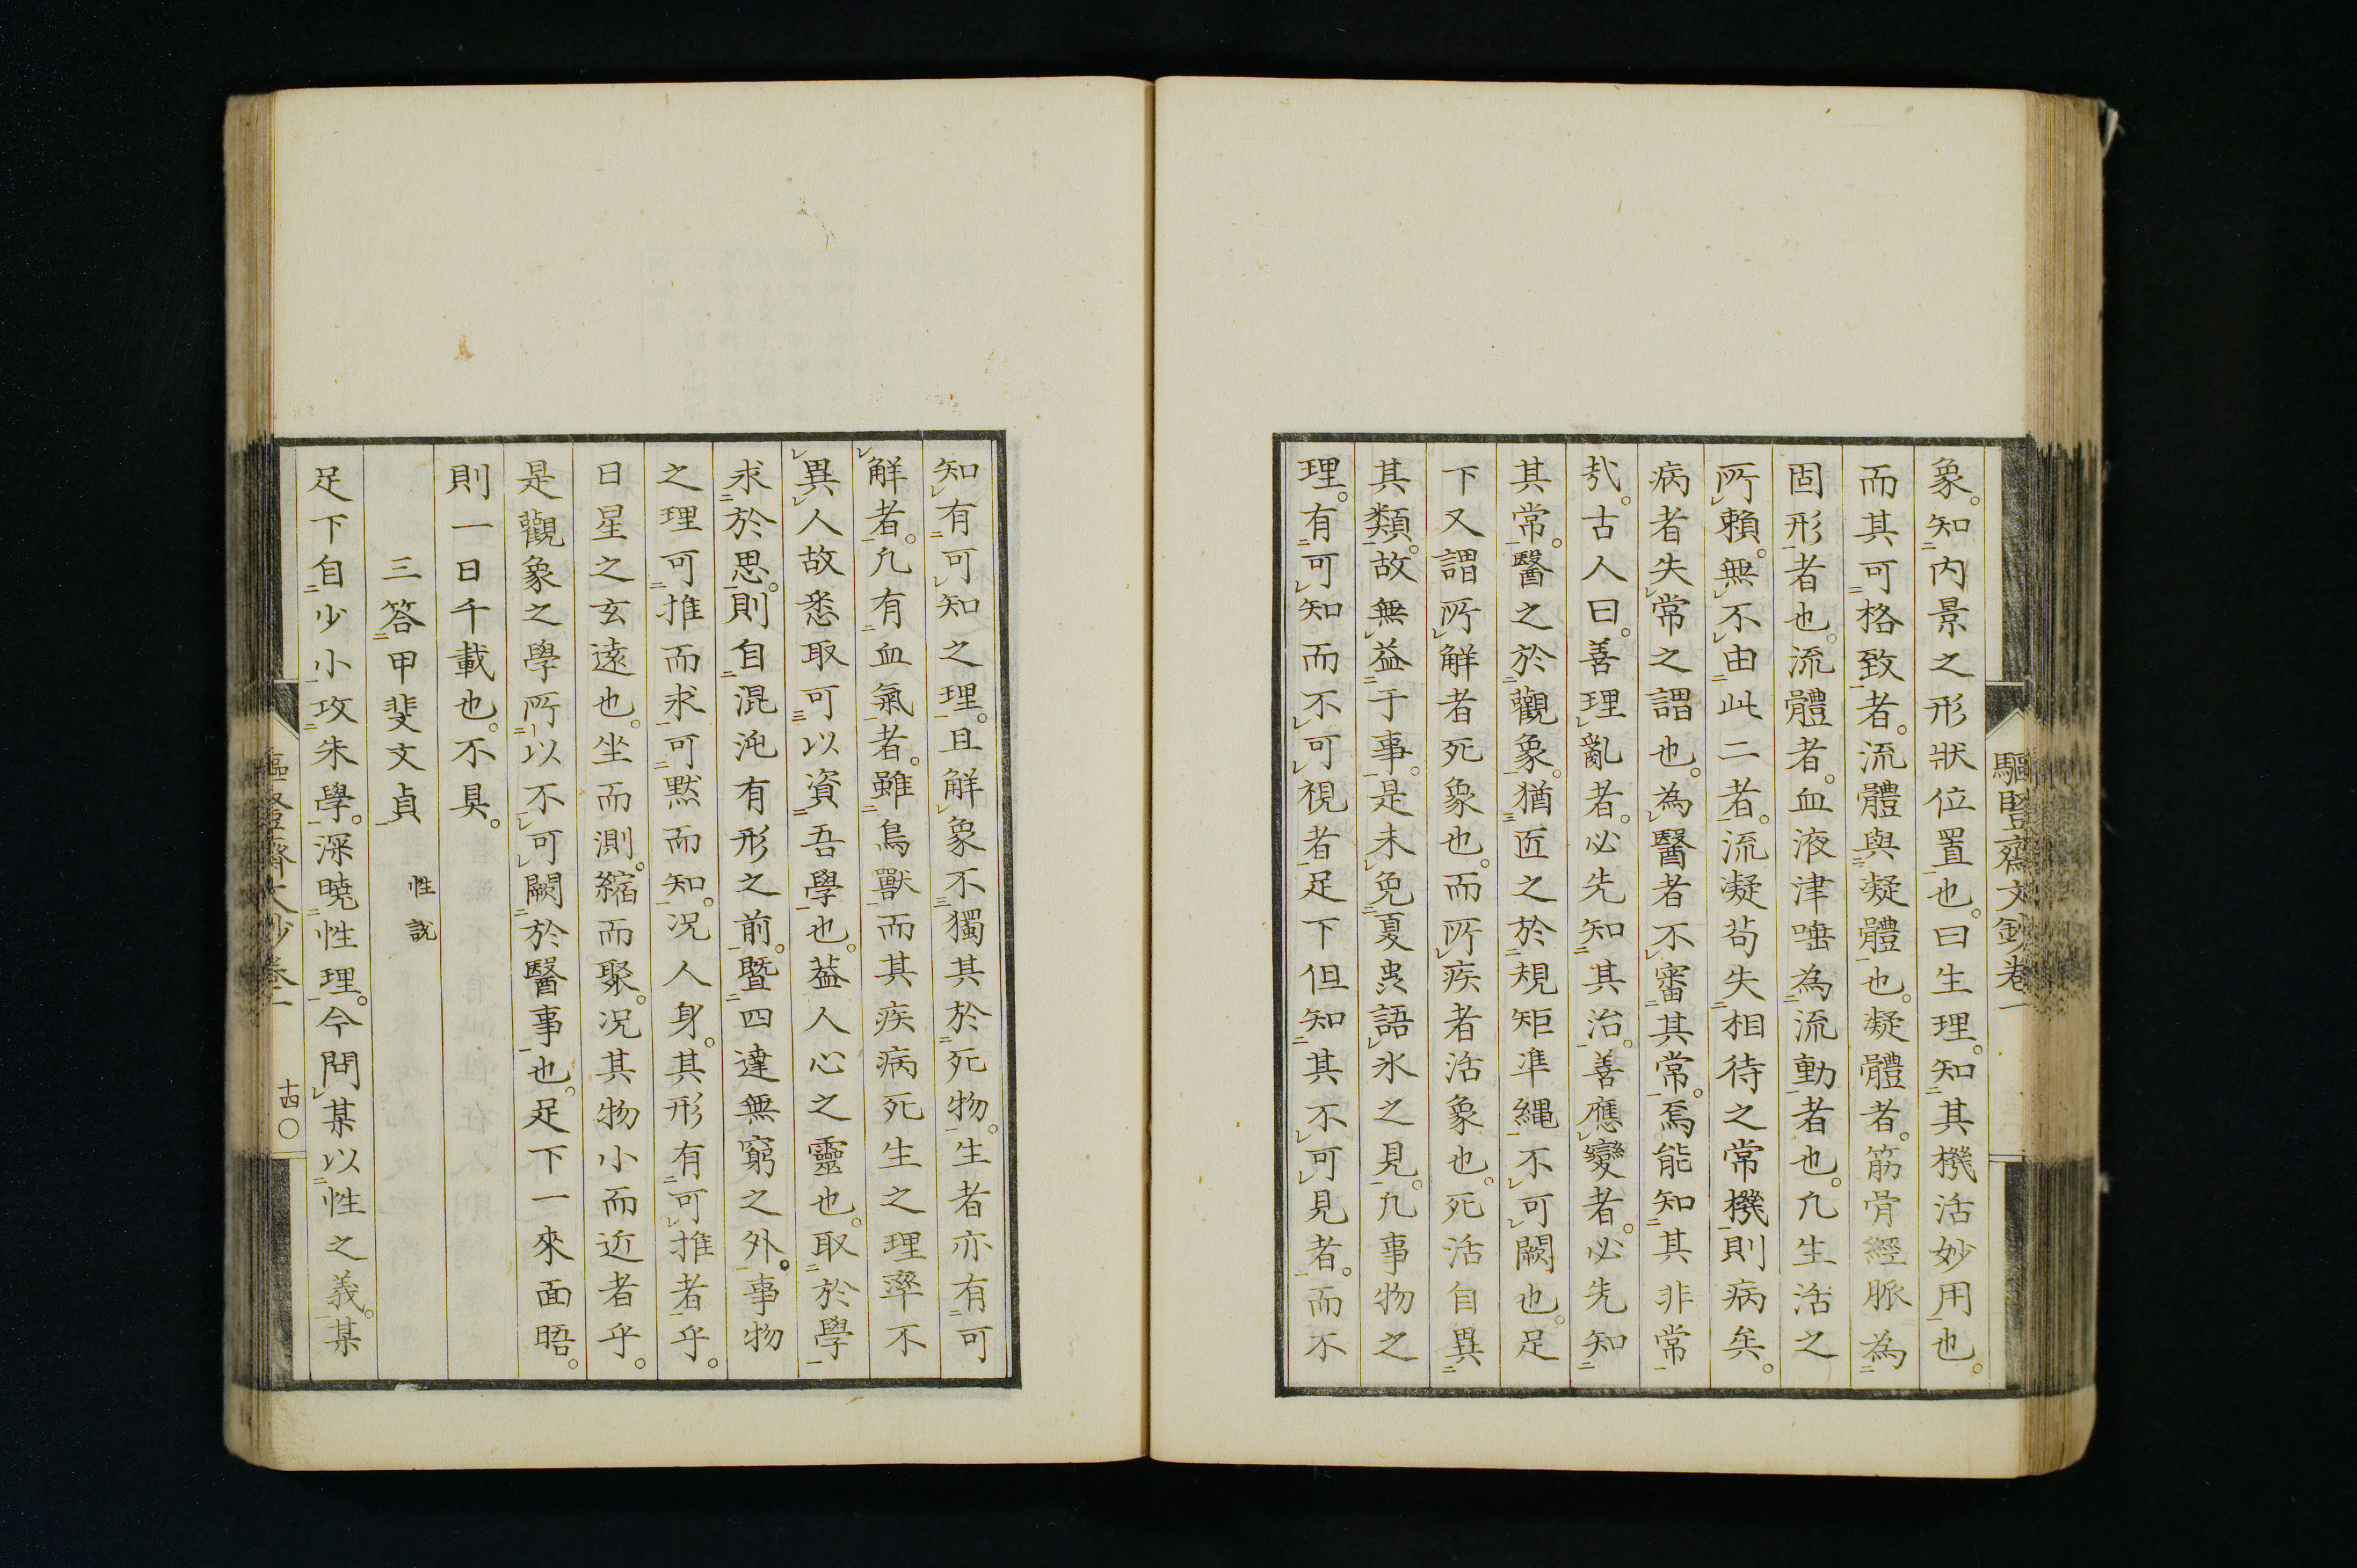 驅豎齋文鈔卷一
象。知内景之形狀位置也。曰生理。知其機活妙用也。
而其可格致者。流體與凝體也。凝體者。筋骨經脈為
固形者也。流體者。血液津唾為流動者也。凡生活之
所賴。無不由此二者。流凝苟失相待之常機則病矣。
病者失常之謂也。為醫者不審其常。焉能知其非常
哉。古人曰。善理亂者。必先知其治。善應變者。必先知
其常。醫之於觀象。猶匠之於規矩準繩不可闕也。足
下又謂所解者死象也。而所疾者活象也。死活自異
其類。故無益于事。是未免夏蟲語氷之見。凡事物之
理。有可知而不可視者足下但知其不可見者。而不
知有可知之理。且解象不獨其於死物。生者亦有可
解者。凡有血氣者。雖鳥獸而其疾病死生之理率不
異人故悉取可以資吾學也。葢人心之靈也。取於學
求於思。則自混沌有形之前。暨四達無窮之外。事物
之理可推而求可黙而知。况人身。其形有可推者乎。
日星之玄遠也。坐而測。縮而聚。况其物小而近者乎。
是觀象之學所以不可闕於醫事也。足下一來面晤。
則一日千載也。不具。
三答甲斐文貞 性説
足下自少小攻朱學。深曉性理。今問某以性之義。某
十四〇